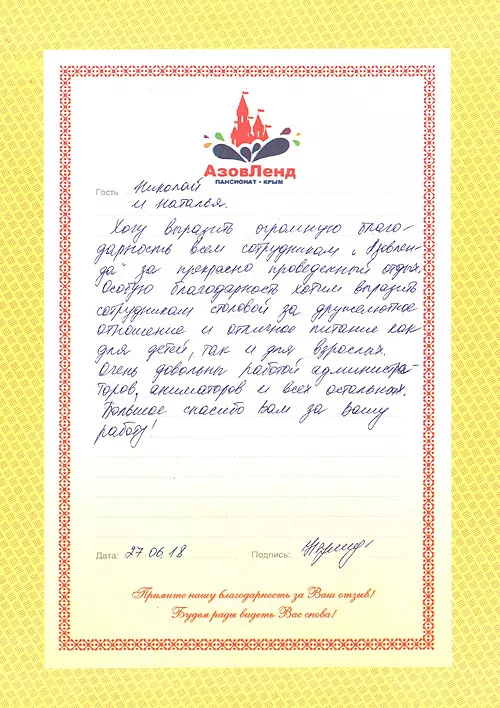 АзовЛенд
ПАНСИОНАТ • КРЫМ
Гость Николай
и Наталья.
Хочу выразить огромную благо-
дарность всем сотрудникам „Азовлен-
да" за прекрасно проведенный отдых.
Особую благодарность хотим выразить
сотрудникам столовой за дружелюбное
отношение и отличное питание как
для детей, так и для взрослых.
Очень довольны работой администра-
торов, аниматоров и всех остальных.
Большое спасибо Вам за Вашу
работу!
Дата: 27.06.18 Подпись:
Примите нашу благодарность за Ваш отзыв!
Будем рады видеть Вас снова!